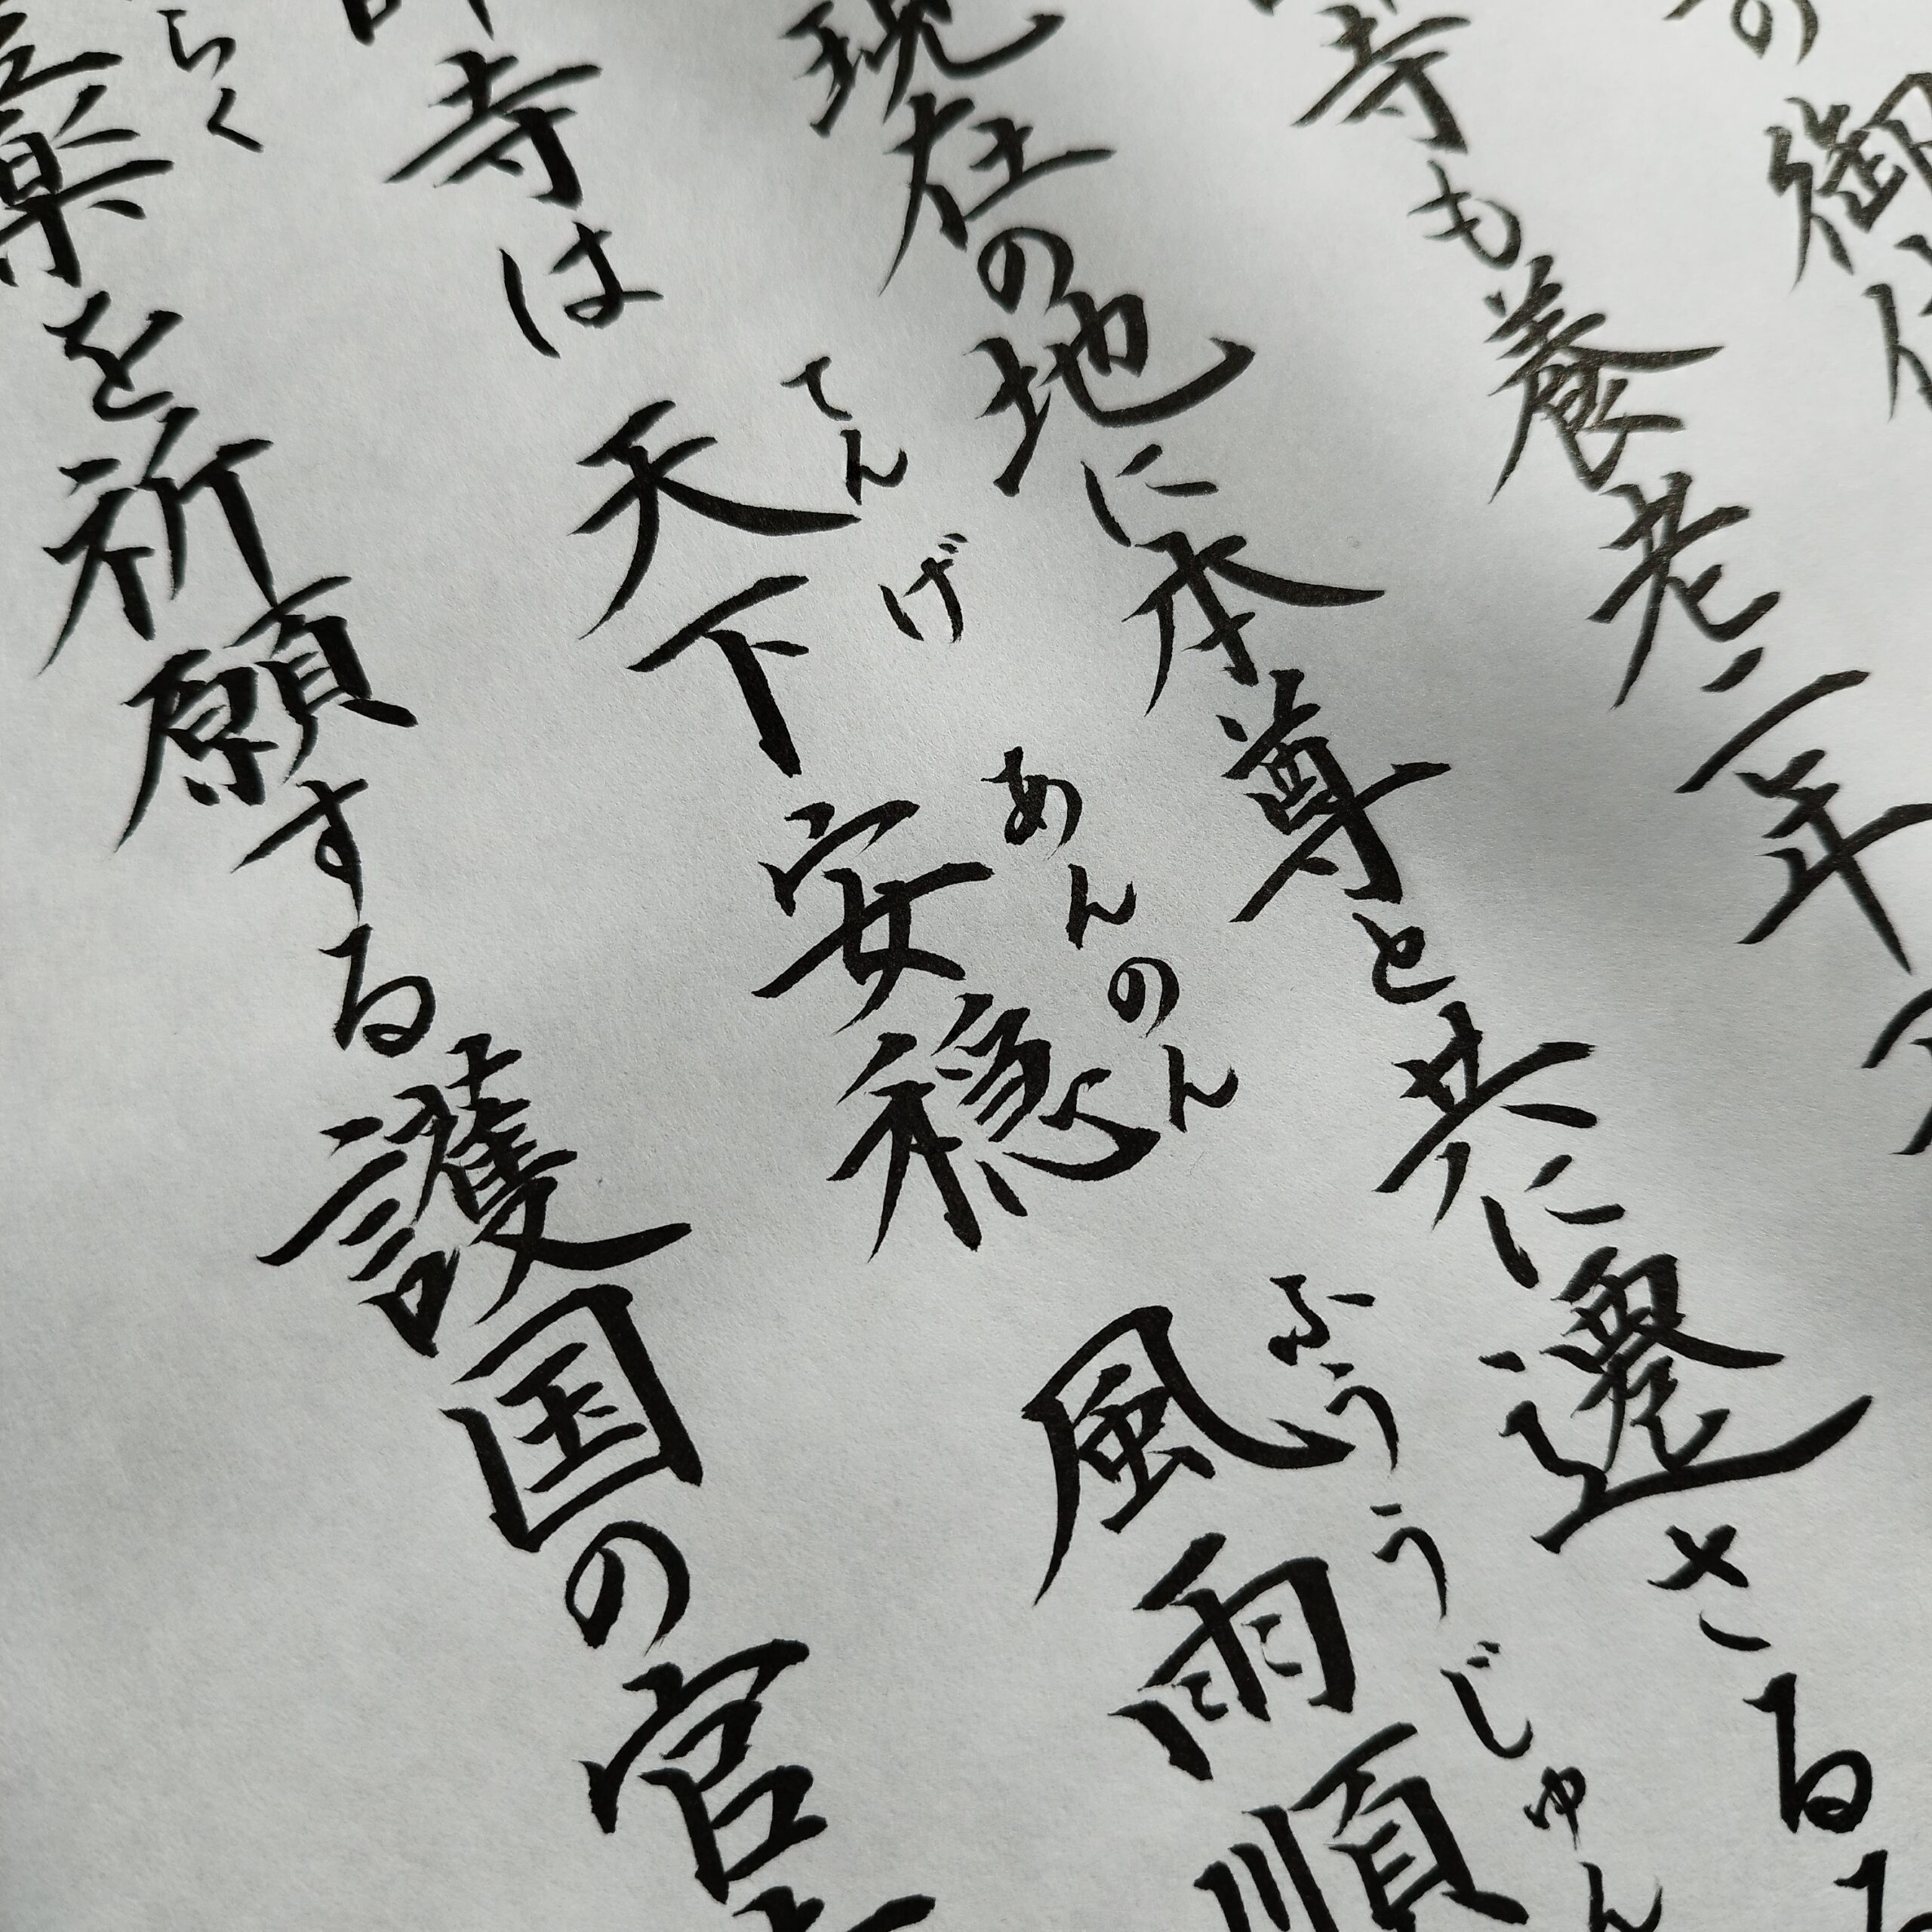 の御
寺も養老二年
現在の地に本尊と共に遷さる
てんげ あんのん ふううじゅん
寺は天下安穏風雨順
らく
薬を祈願する護国の官